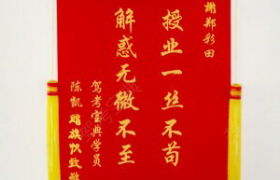 谢郑彩田
授业一丝不苟
解惑无微不至
驾考宝典学员
陈凯赠旗以致敬